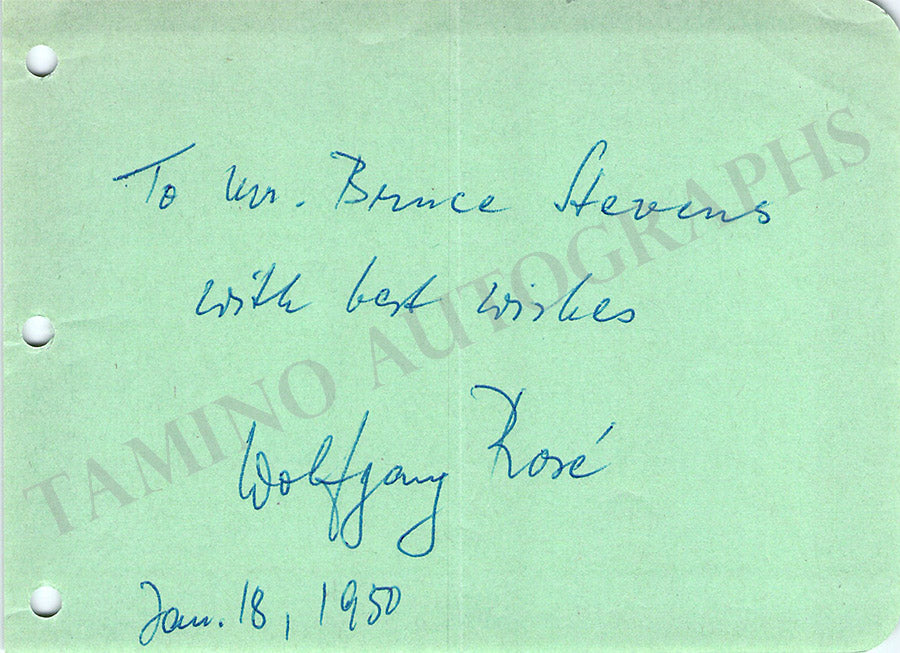 To Mr. Bruce Stevens
with best wishes
Wolfgang Rosé
Jan. 18, 1950
TAMINO AUTOGRAPHS